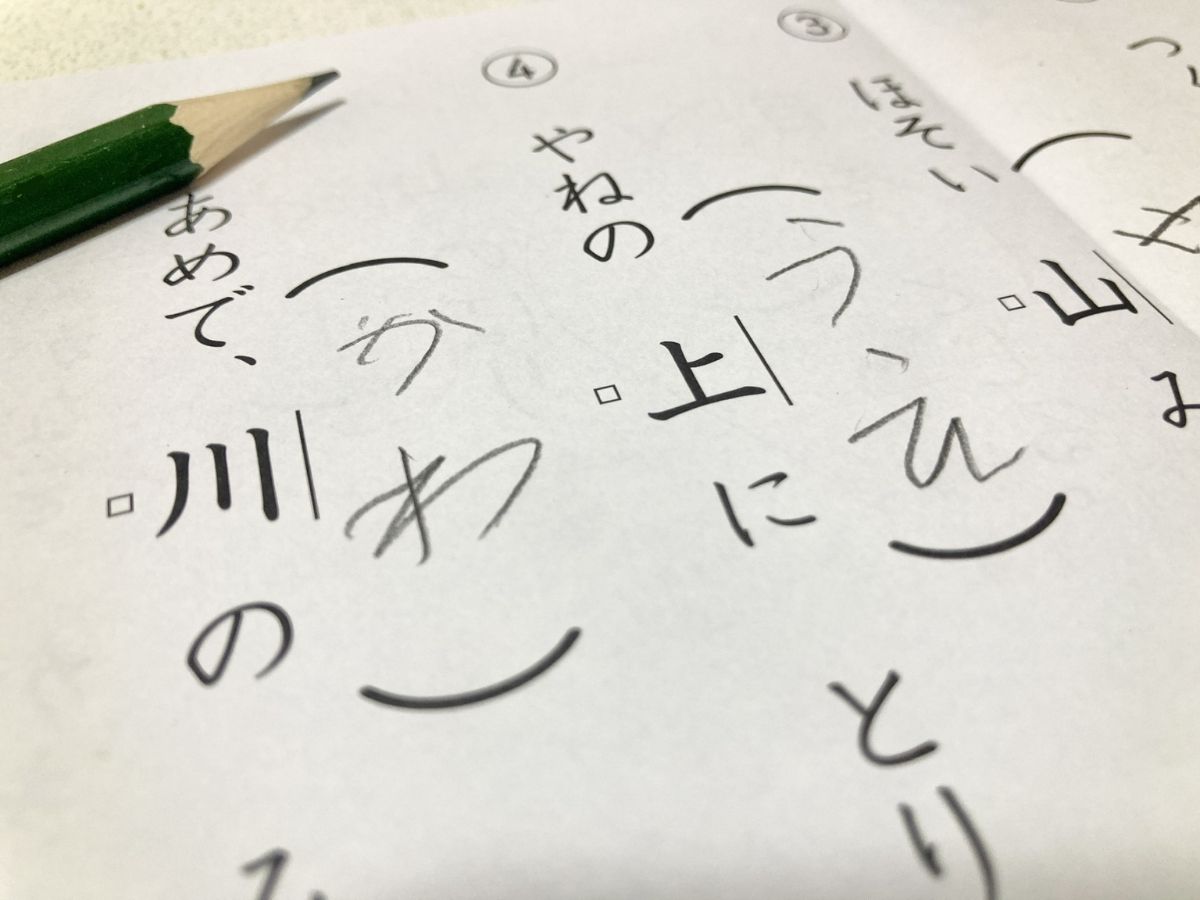 ③
ほそい山
（うえ）
④
やねの上に とり
（かわ）
あめで、川の